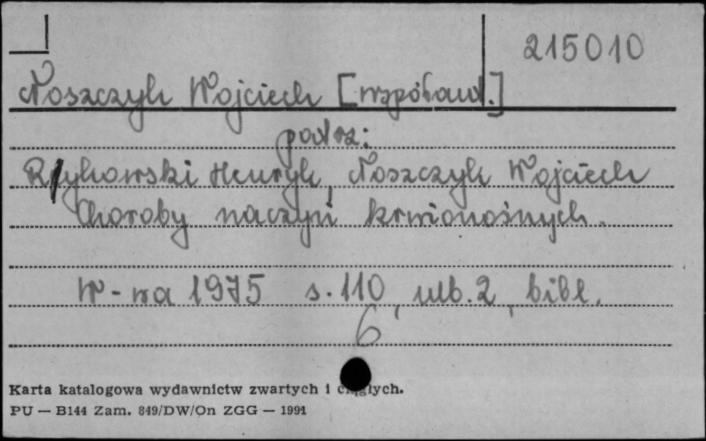 215010
Noszczyk Wojciech [współaut.]
podrz:
Rykowski Henryk, Noszczyk Wojciech
Choroby naczyń krwionośnych.
W-wa 1975 s. 110, ulb. 2, bibl.
6
Karta katalogowa wydawnictw zwartych i ciągłych.
PU — B144 Zam. 849/DW/On ZGG — 1991